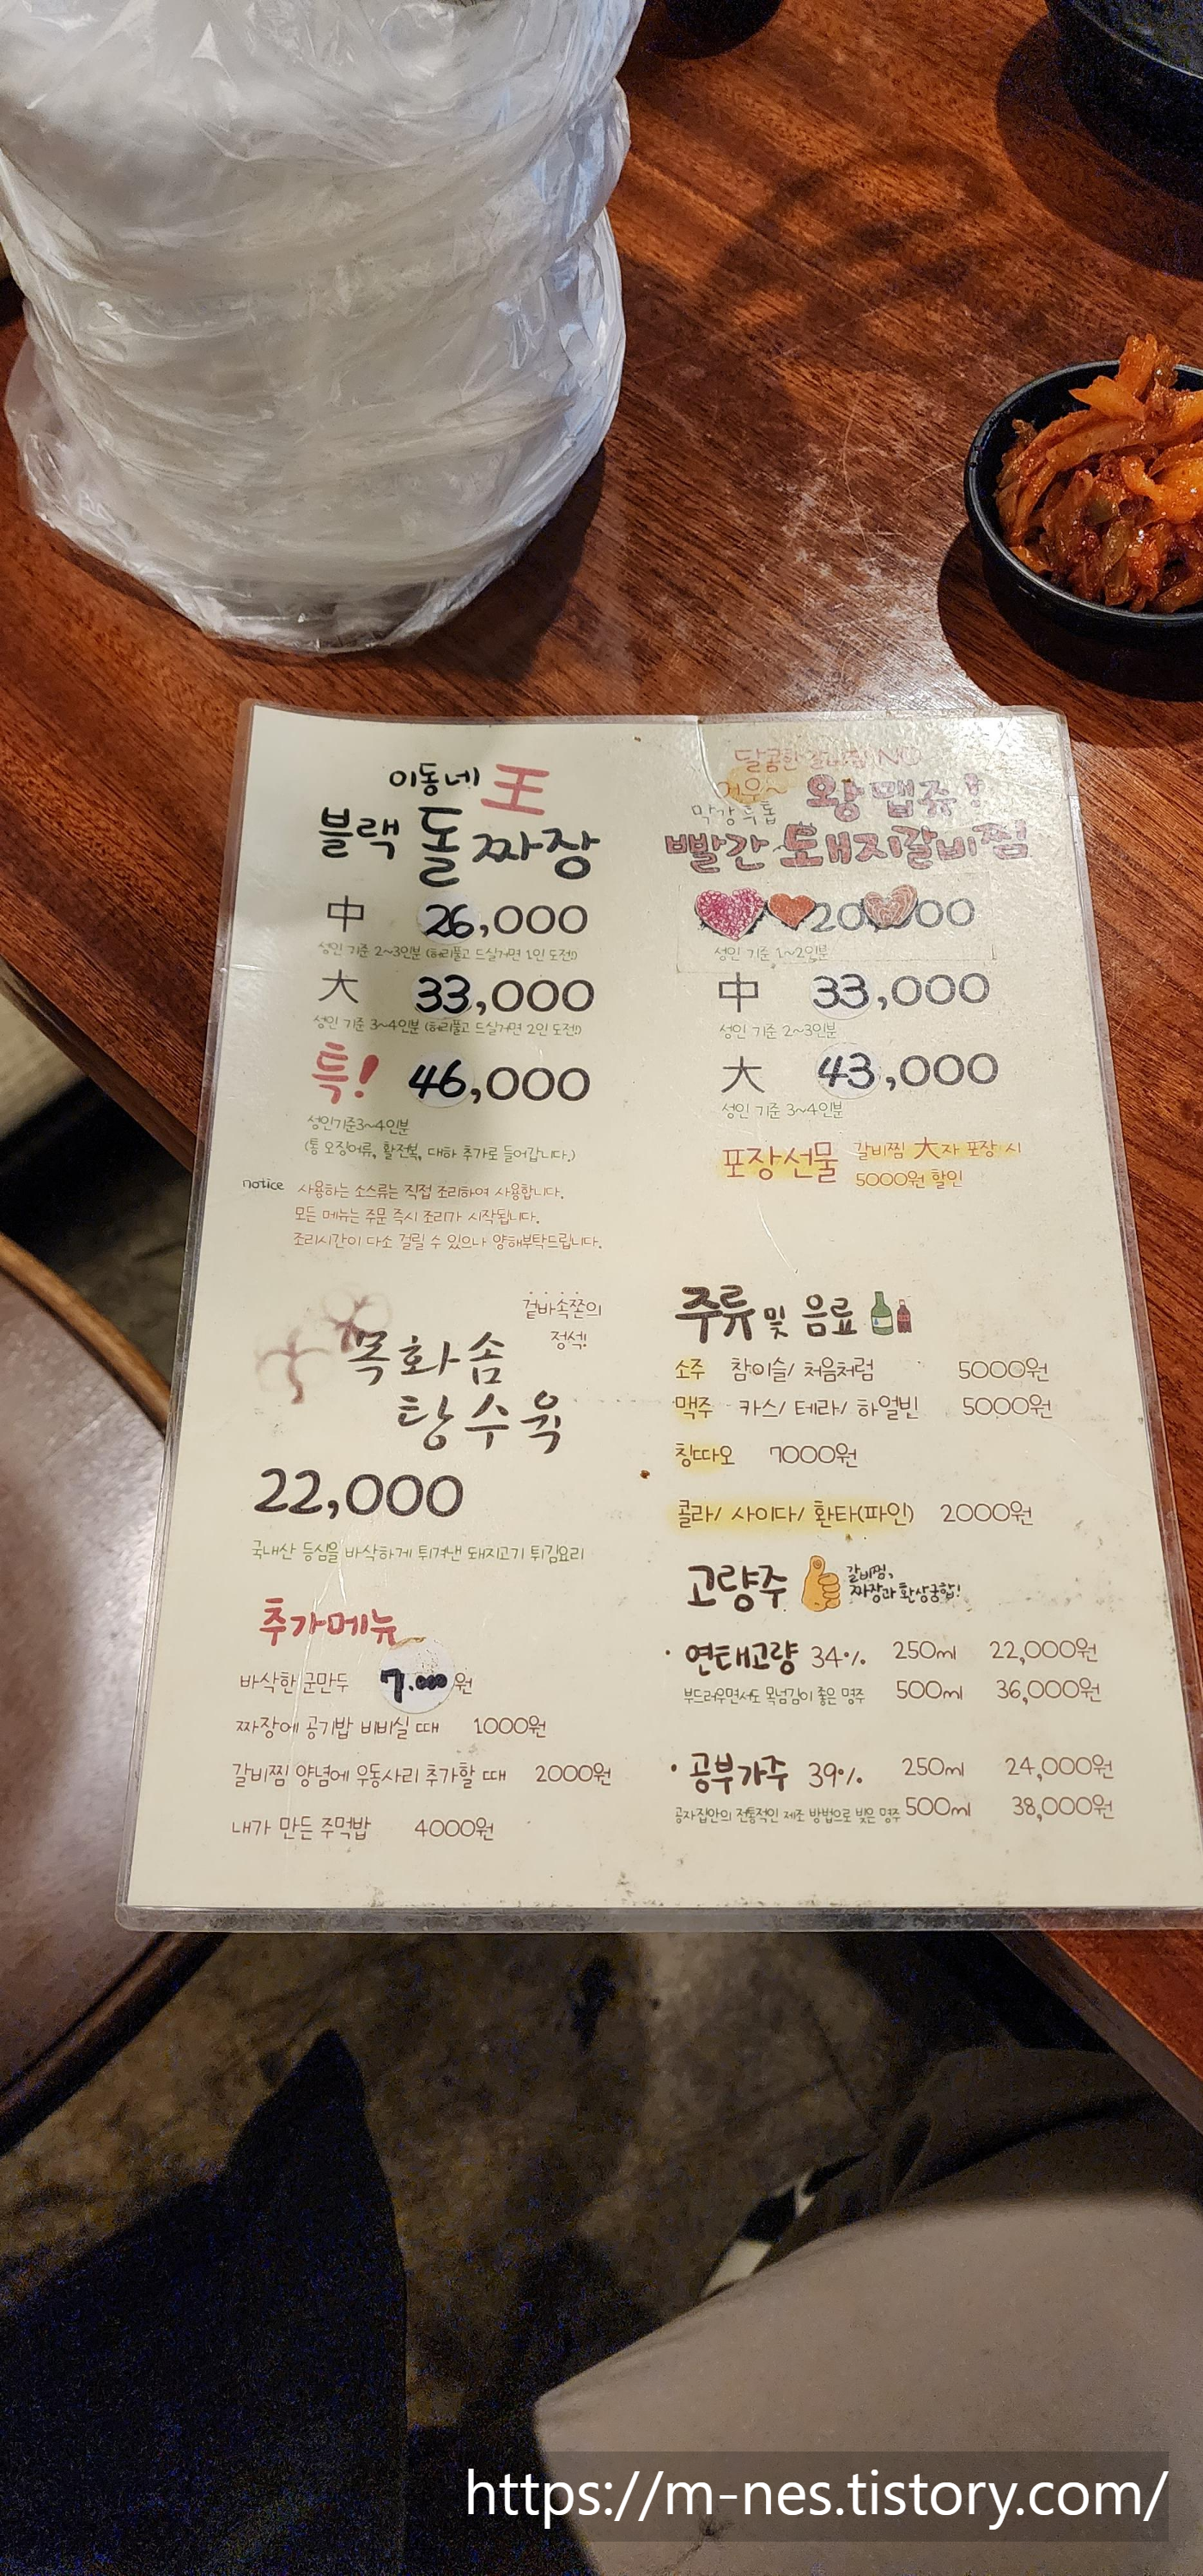 이동네 王
블랙 돌짜장
中 26,000
성인 기준 2~3인분 (허리풀고 드실거면 1인 도전!)
大 33,000
성인 기준 3~4인분 (허리풀고 드실거면 2인 도전!)
특! 46,000
성인기준3~4인분
(통 오징어류, 활전복, 대하 추가로 들어갑니다.)
notice 사용하는 소스류는 직접 조리하여 사용합니다.
모든 메뉴는 주문 즉시 조리가 시작됩니다.
조리시간이 다소 걸릴 수 있으나 양해부탁드립니다.
겉바속쫀의
정석!
목화솜
탕수육
22,000
국내산 등심을 바삭하게 튀겨낸 돼지고기 튀김요리
추가메뉴
바삭한 군만두 7.000원
짜장에 공기밥 비비실 때 1000원
갈비찜 양념에 우동사리 추가할 때 2000원
내가 만든 주먹밥 4000원
달콤한 갈비찜 NO
어우~ 왕맵쥬!
빨간 돼지갈비찜
20 00
성인 기준 1~2인분
中 33,000
성인 기준 2~3인분
大 43,000
성인 기준 3~4인분
포장선물 갈비찜 大자 포장 시
5000원 할인
주류 및 음료
소주 참이슬/ 처음처럼 5000원
맥주 카스/ 테라/ 하얼빈 5000원
칭따오 7000원
콜라/ 사이다/ 환타(파인) 2000원
고량주 갈비찜,
짜장과 환상궁합!
· 연태고량 34% 250ml 22,000원
부드러우면서도 목넘김이 좋은 명주 500ml 36,000원
· 공부가주 39% 250ml 24,000원
공자집안의 전통적인 제조 방법으로 빚은 명주 500ml 38,000원
https://m-nes.tistory.com/